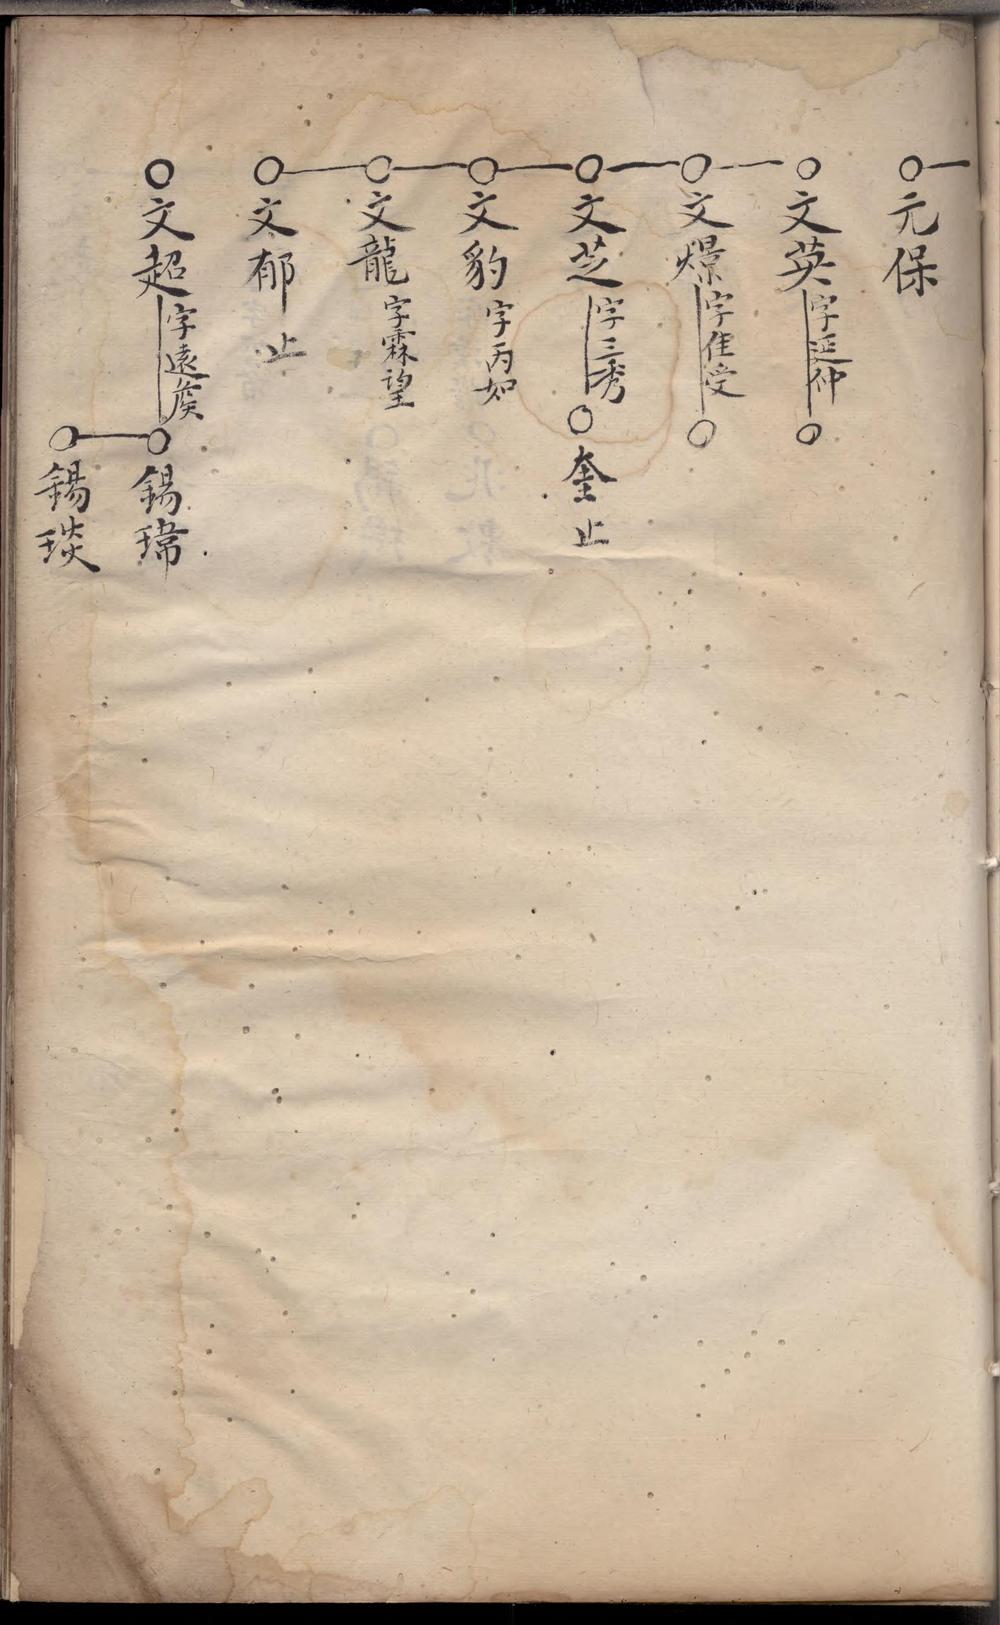 元保
文英 字延仲
文燝 字隹受
文芝 字三秀
奎止
文豹 字丙如
文龍 字霖望
文郁 止
文超 字遠侯
錫瑋
錫琰